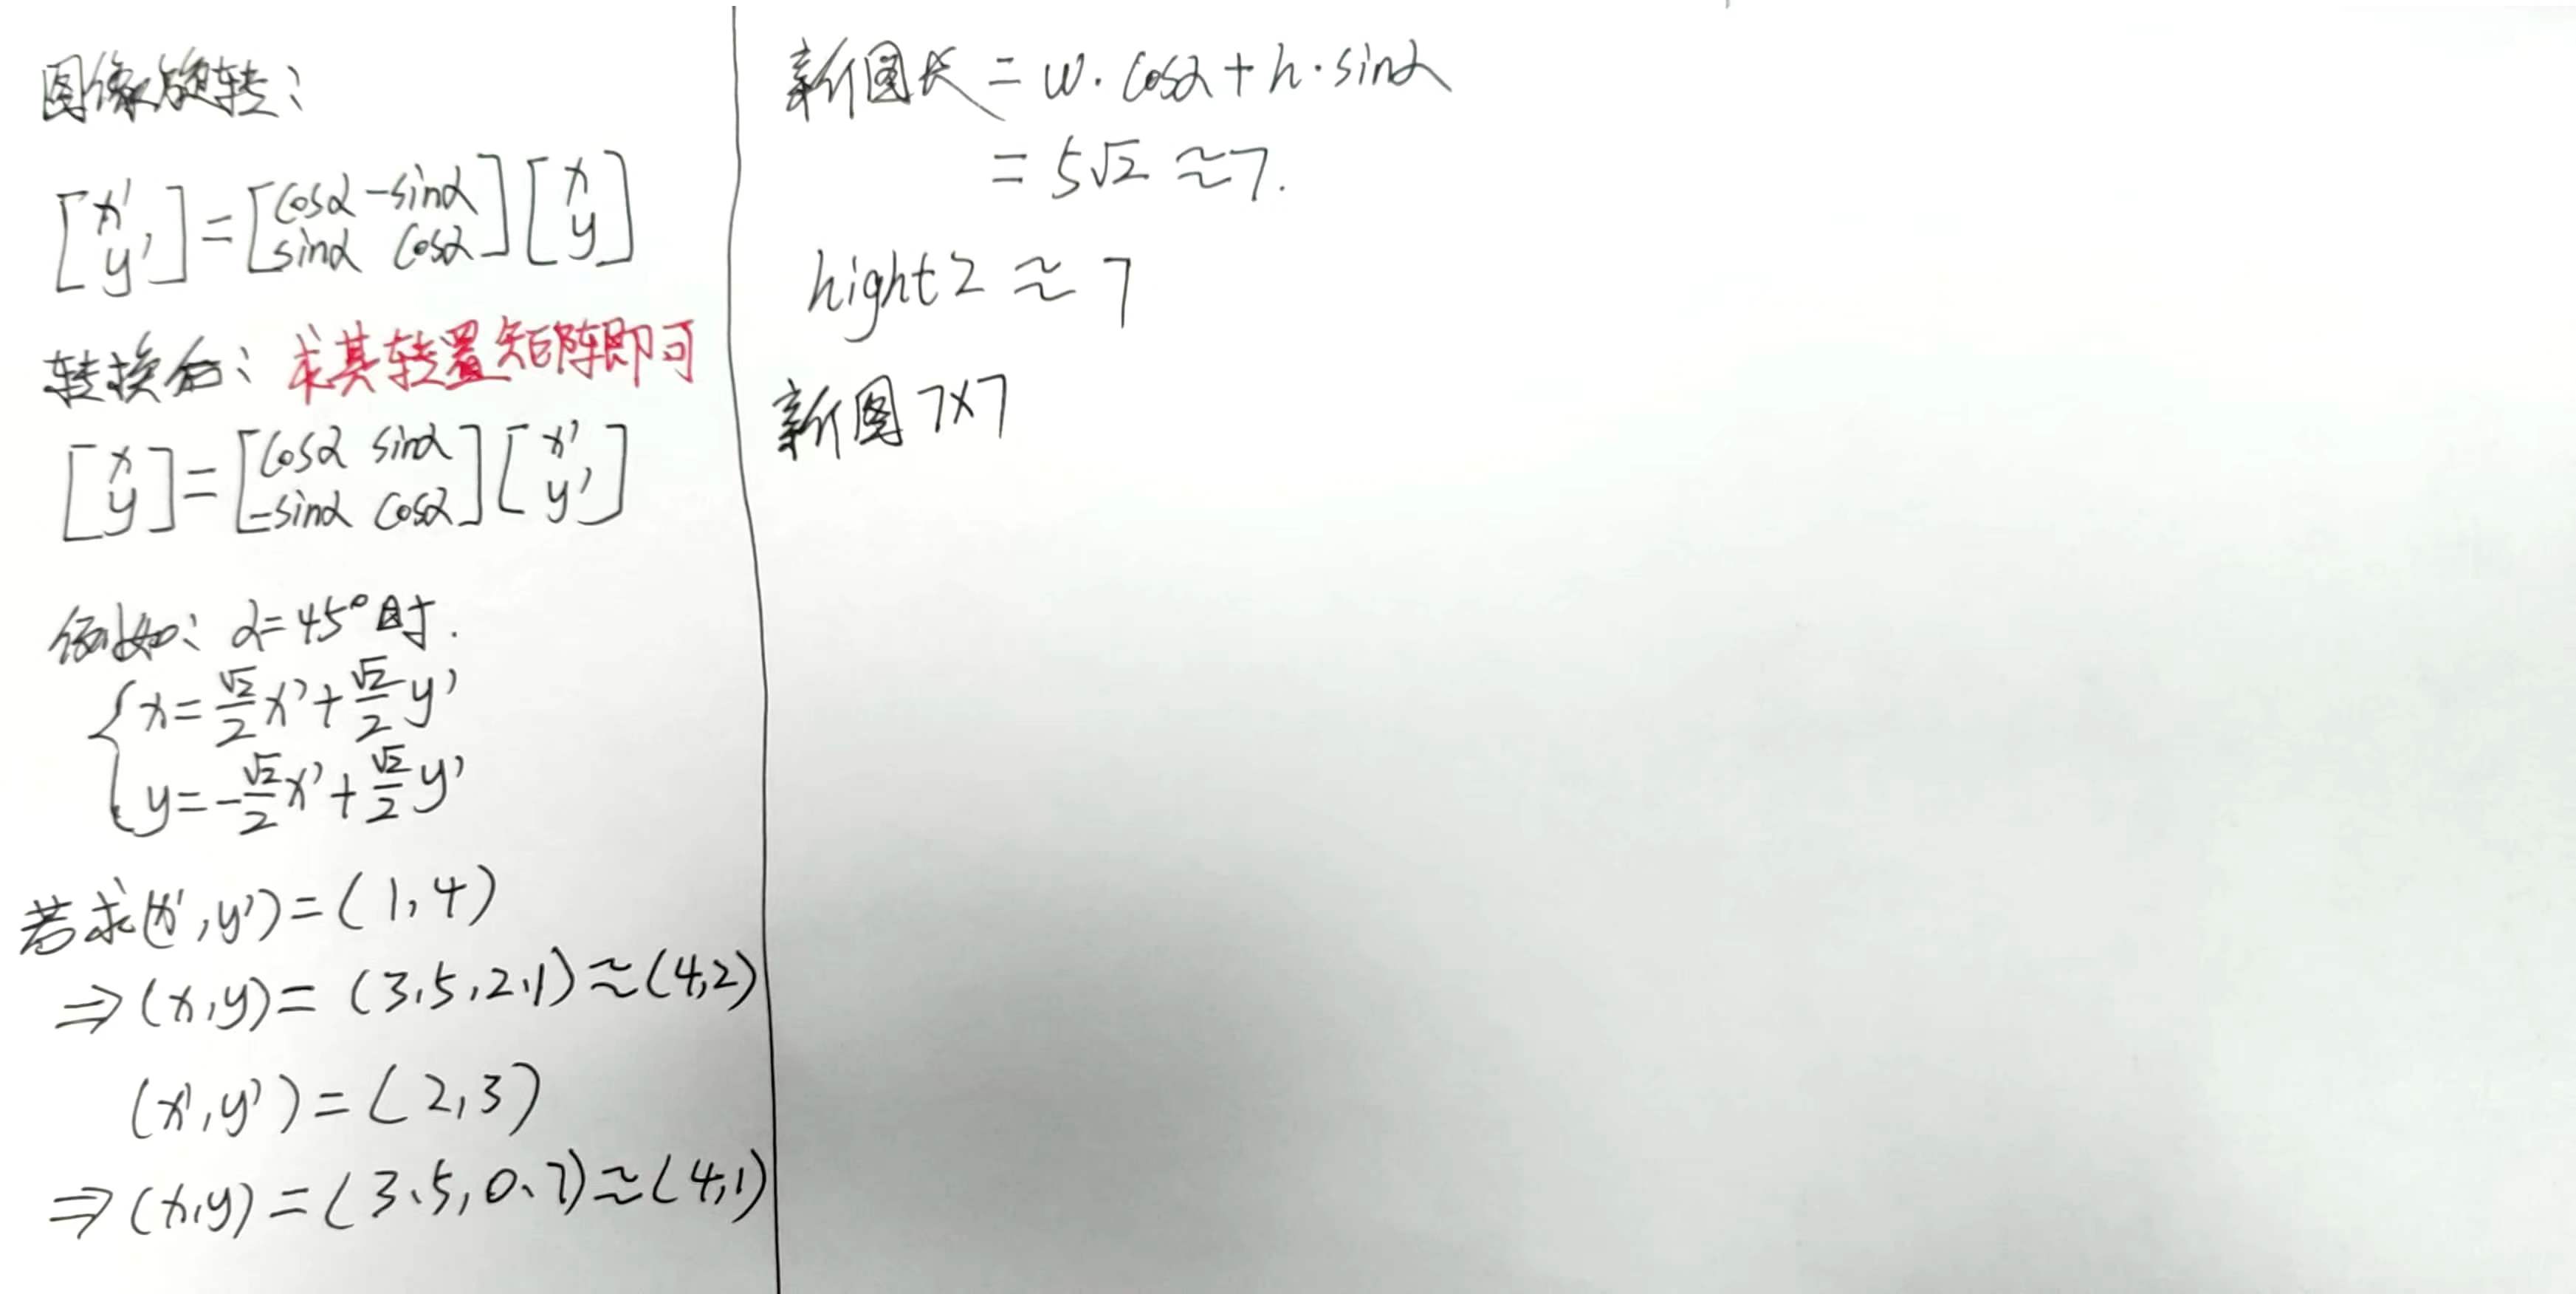 图像旋转:
[x' y'] = [cosα -sinα sinα cosα] [x y]
转换后: 求其转置矩阵即可
[x y] = [cosα sinα -sinα cosα] [x' y']
例如: α=45°时.
{ x = √2/2 x' + √2/2 y'
y = -√2/2 x' + √2/2 y'
若求(x',y')=(1,4)
⇒(x,y)=(3.5,2.1)≈(4,2)
(x',y')=(2,3)
⇒(x,y)=(3.5,0.7)≈(4,1)
新图长 = w·cosα+h·sinα
= 5√2 ≈7.
hight2 ≈ 7
新图 7×7